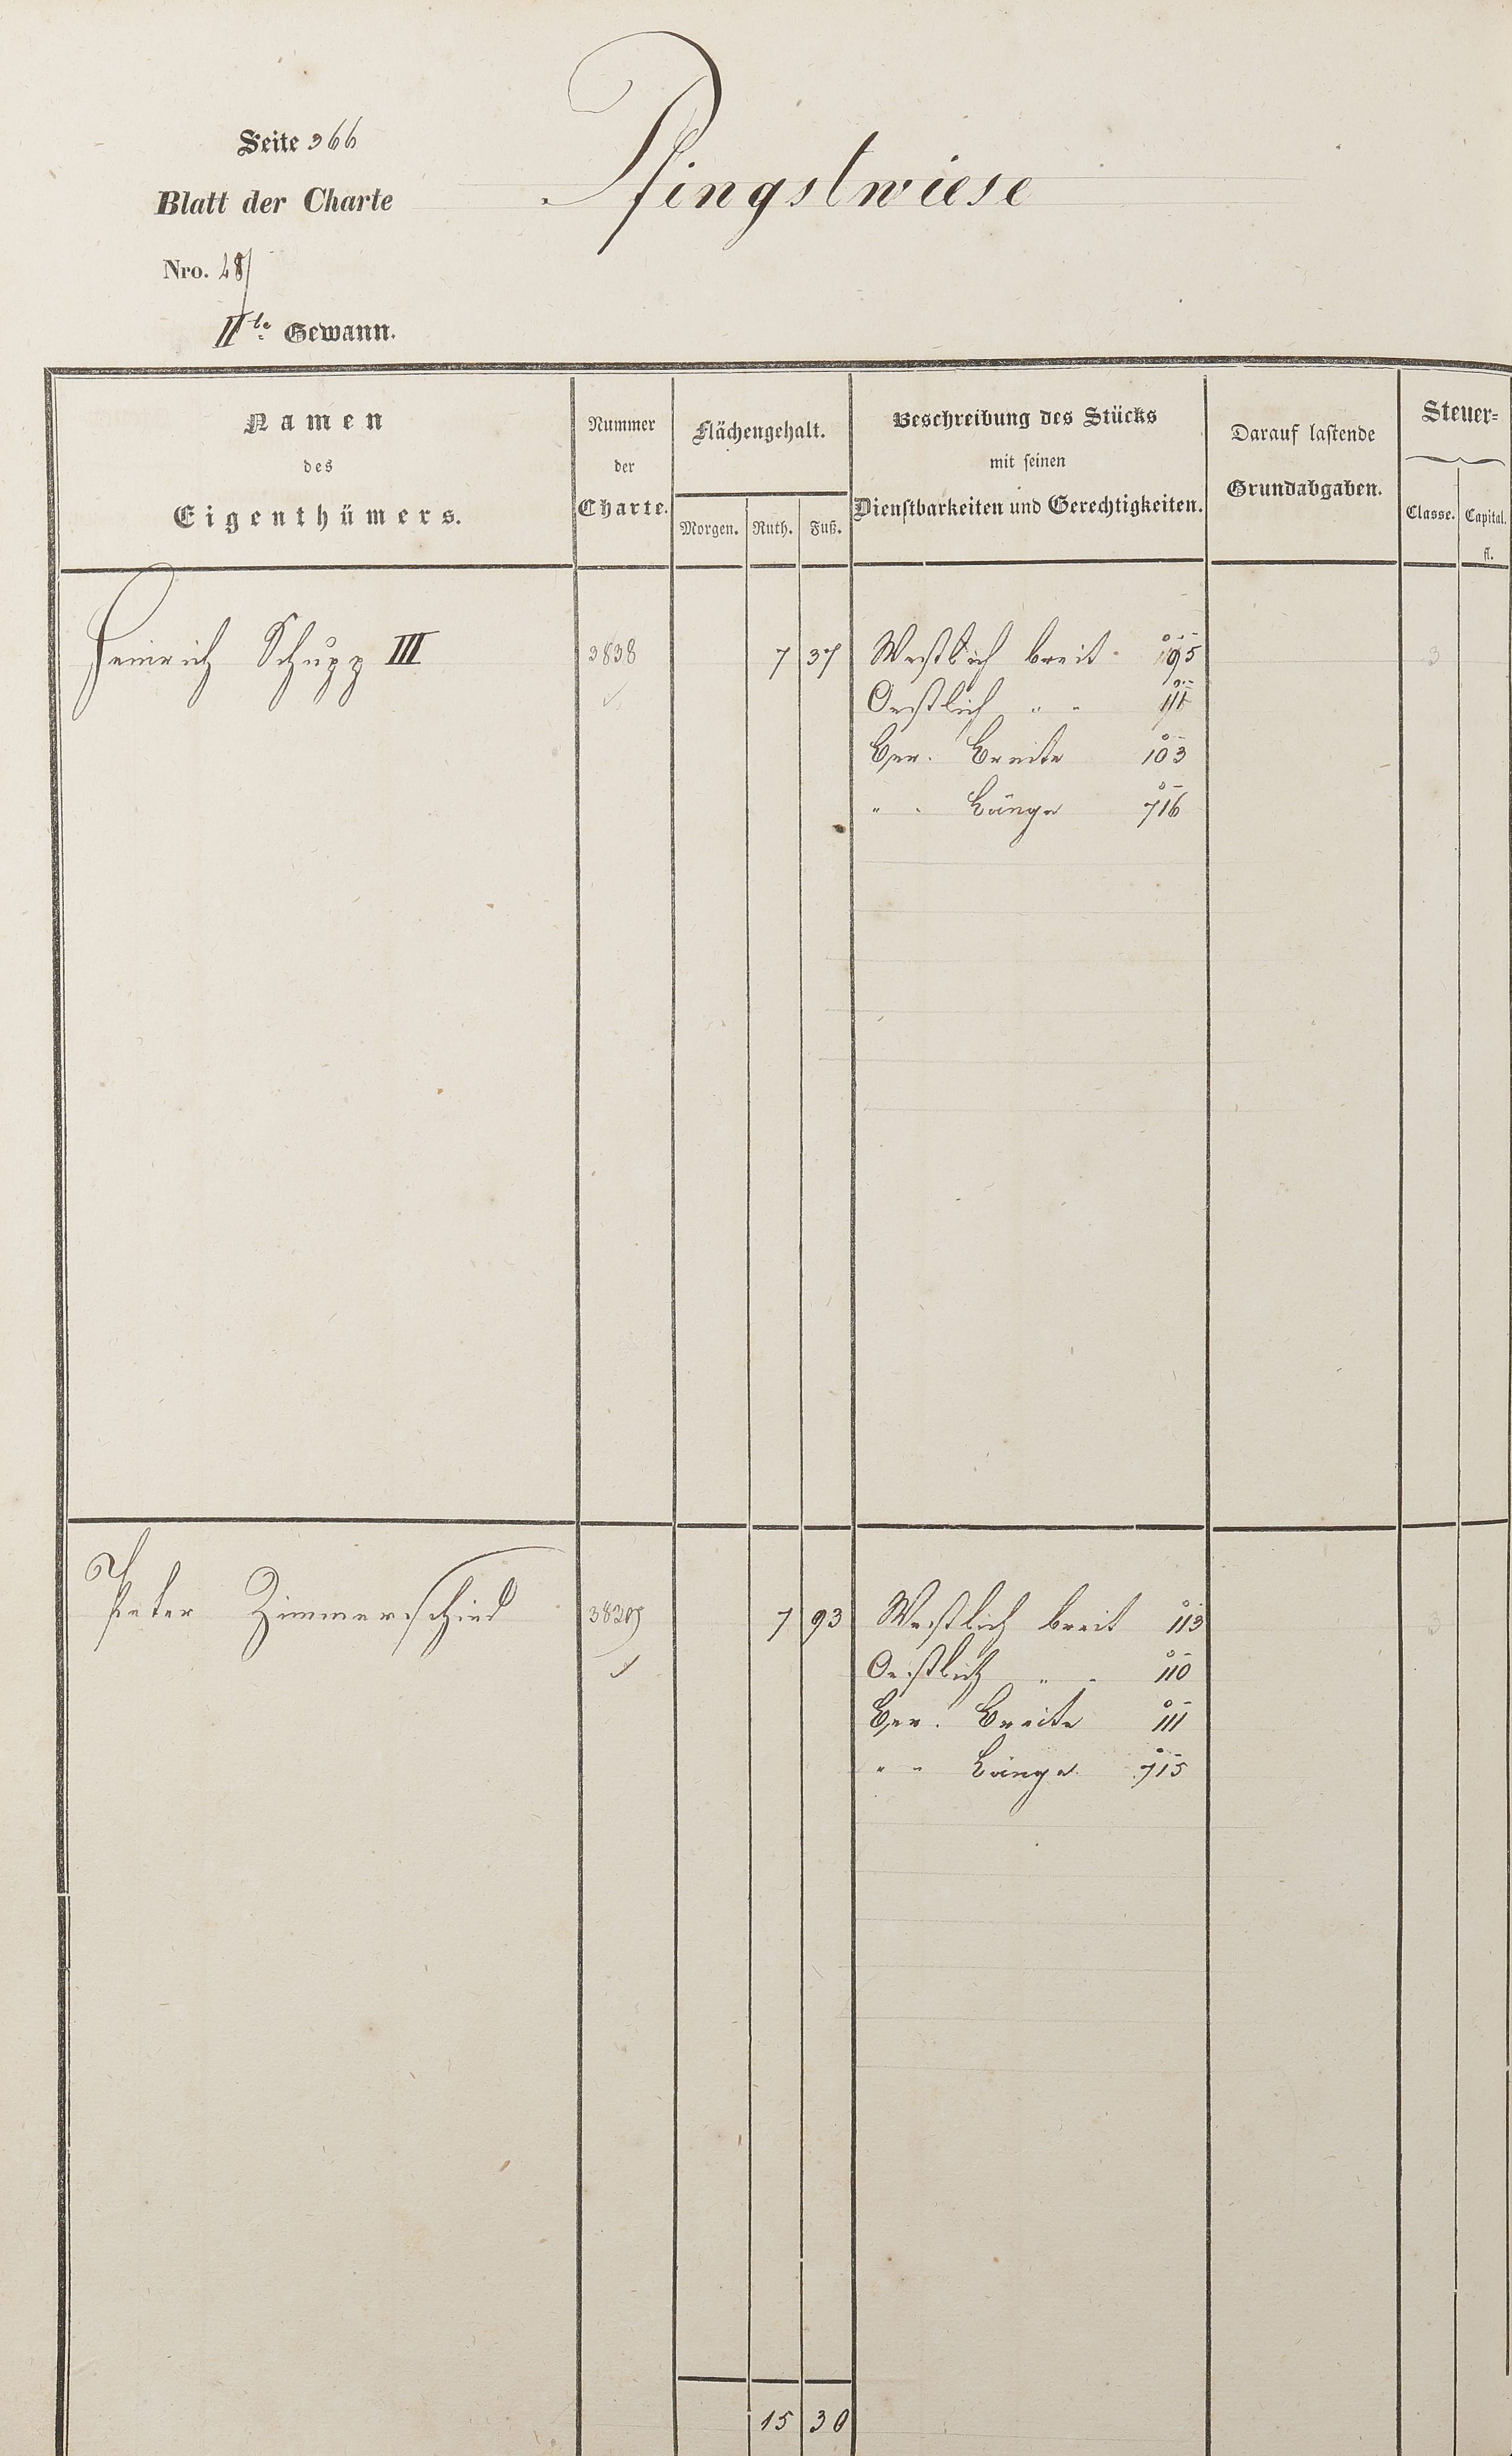 Seite 366
Blatt der Charte
Pfingstwiese
Nro. 48
IIte Gewann.
Namen
des
Eigenthümers.
Nummer
der
Charte.
Flächengehalt.
Morgen. Ruth. Fuß.
Beschreibung des Stücks
mit seinen
Dienstbarkeiten und Gerechtigkeiten.
Darauf lastende
Grundabgaben.
Steuer-
Classe. Capital.
fl.
Heinrich Schupp III 3838 7 37 Westlich breit 95 3
Oestlich " " 111
Ber. Breite 103
" " Länge 716
Peter Zimmerschied 3839 7 93 Westlich breit 113 3
Oestlich " " 110
Ber. Breite 111
" " Länge 715
15 30